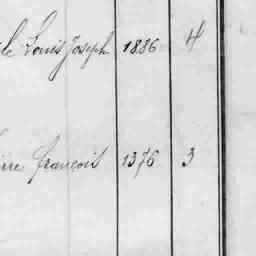 Louis Joseph 1886 4
François 1376 3